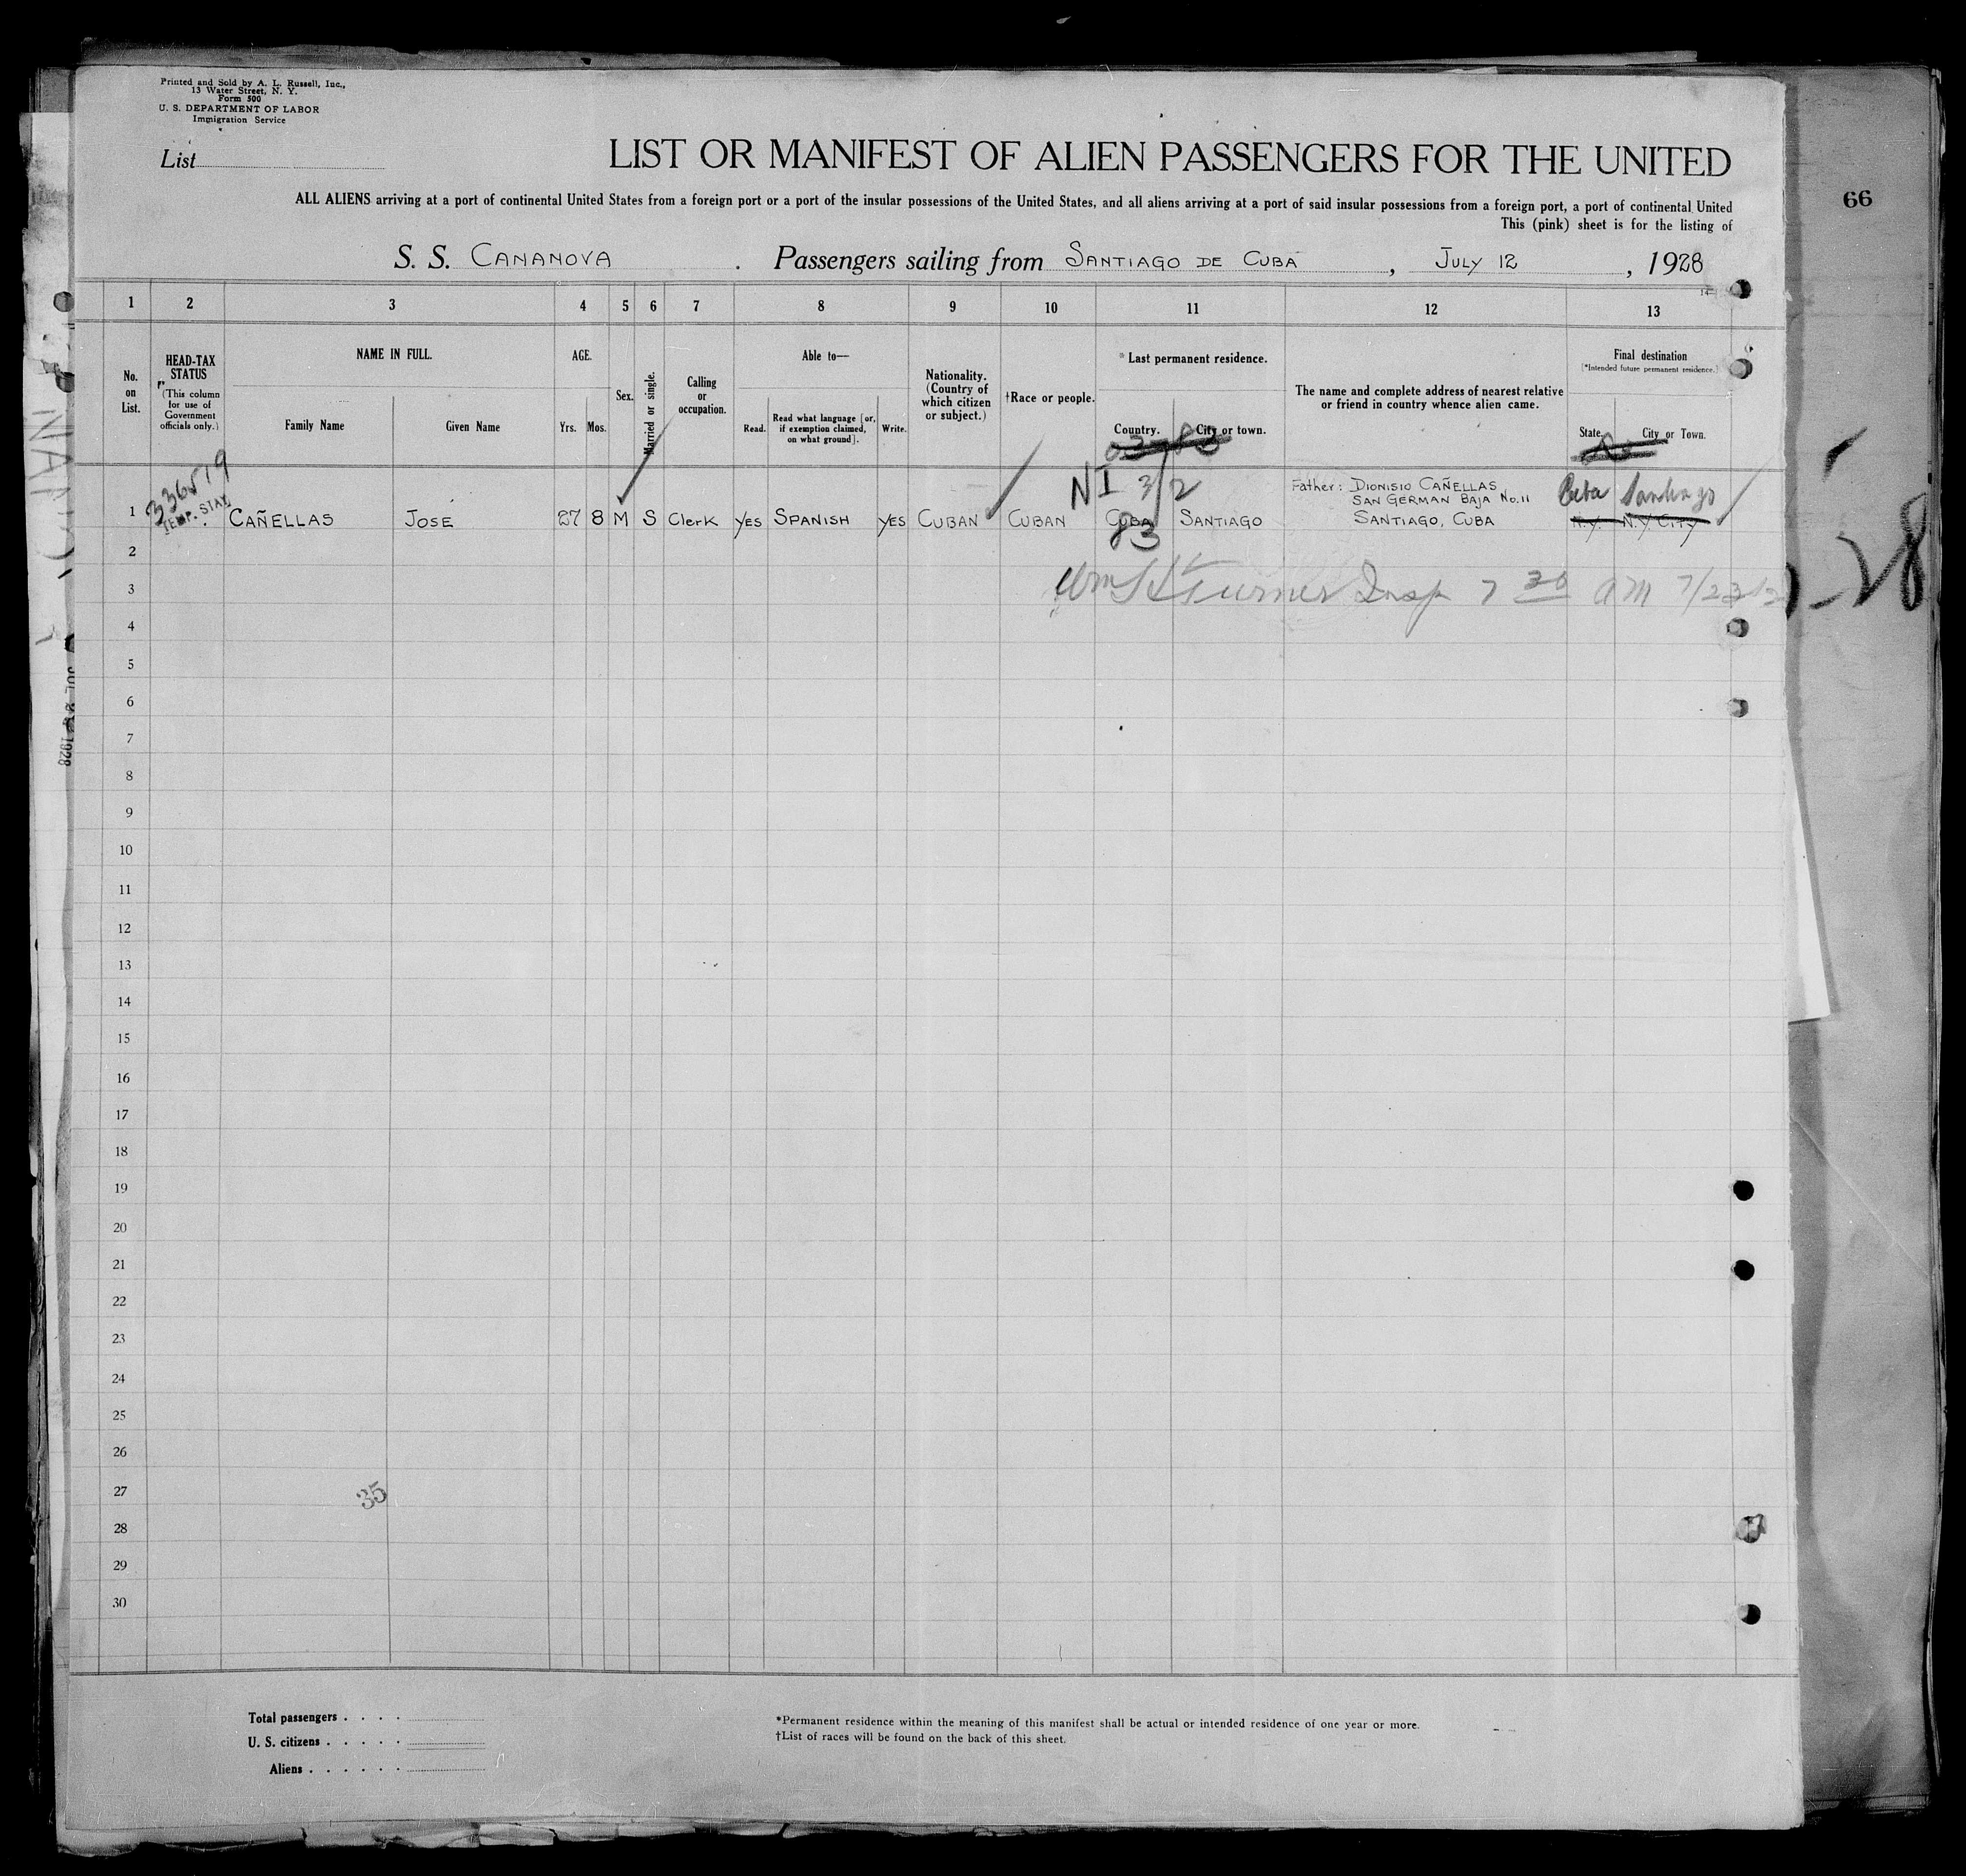 Printed and Sold by A. L. Russell, Inc.,
13 Water Street, N. Y.
Form 500
U. S. DEPARTMENT OF LABOR
Immigration Service
List
LIST OR MANIFEST OF ALIEN PASSENGERS FOR THE UNITED
ALL ALIENS arriving at a port of continental United States from a foreign port or a port of the insular possessions of the United States, and all aliens arriving at a port of said insular possessions from a foreign port, a port of continental United
This (pink) sheet is for the listing of
66
S. S. CANANOVA. Passengers sailing from SANTIAGO DE CUBA, JULY 12, 1928
1 2 3 4 5 6 7 8 9 10 11 12 13
No. on List.
HEAD-TAX STATUS
(This column for use of Government officials only.)
NAME IN FULL.
Family Name
Given Name
AGE.
Yrs.
Mos.
Sex.
Married or single.
Calling or occupation.
Able to—
Read.
Read what language [or, if exemption claimed, on what ground].
Write.
Nationality. (Country of which citizen or subject.)
†Race or people.
*Last permanent residence.
Country.
City or town.
The name and complete address of nearest relative or friend in country whence alien came.
Final destination
(*Intended future permanent residence.)
State.
City or Town.
336519
TEMP. STAY
NI 3/2
83
1 CAÑELLAS JOSE 27 8 M S Clerk YES SPANISH YES CUBAN CUBAN CUBA SANTIAGO
Father: DIONISIO CAÑELLAS
SAN GERMAN BAJA No. 11
SANTIAGO, CUBA
Cuba Santiago
N.Y. N.Y. CITY
2
3
Turner Insp 7 30 AM 7/23/2
28
4
5
6
7
8
9
10
11
12
13
14
15
16
17
18
19
20
21
22
23
24
25
26
27
35
28
29
30
Total passengers . . . .
U. S. citizens . . . . .
Aliens . . . . . .
*Permanent residence within the meaning of this manifest shall be actual or intended residence of one year or more.
†List of races will be found on the back of this sheet.
1928